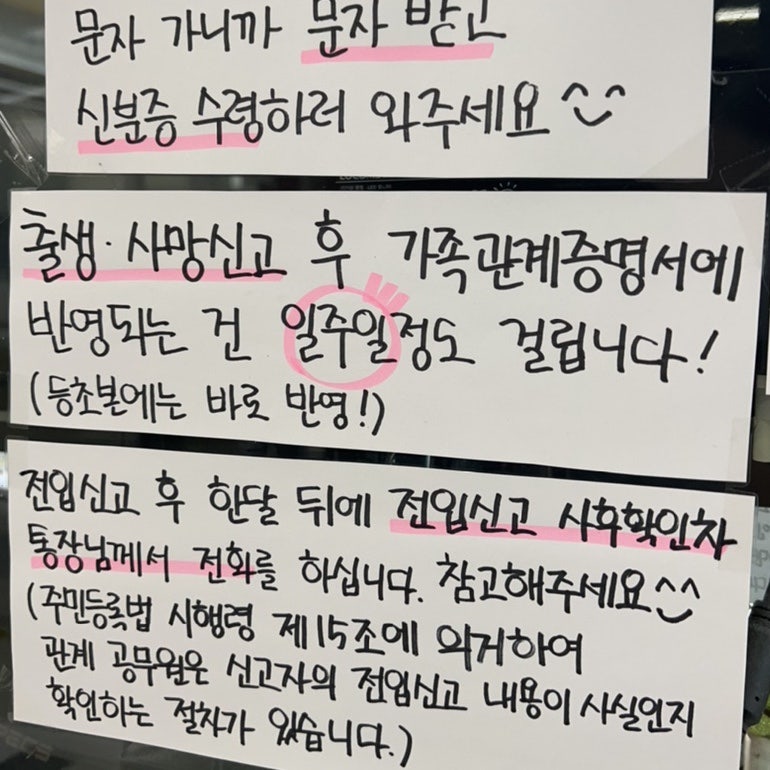 문자 가니까 문자 받고
신분증 수령하러 와주세요^^
출생·사망신고 후 가족관계증명서에
반영되는 건 일주일정도 걸립니다!
(등초본에는 바로 반영!)
전입신고 후 한달 뒤에 전입신고 사후확인차
통장님께서 전화를 하십니다. 참고해주세요^^
(주민등록법 시행령 제15조에 의거하여
관계 공무원은 신고자의 전입신고 내용이 사실인지
확인하는 절차가 있습니다.)